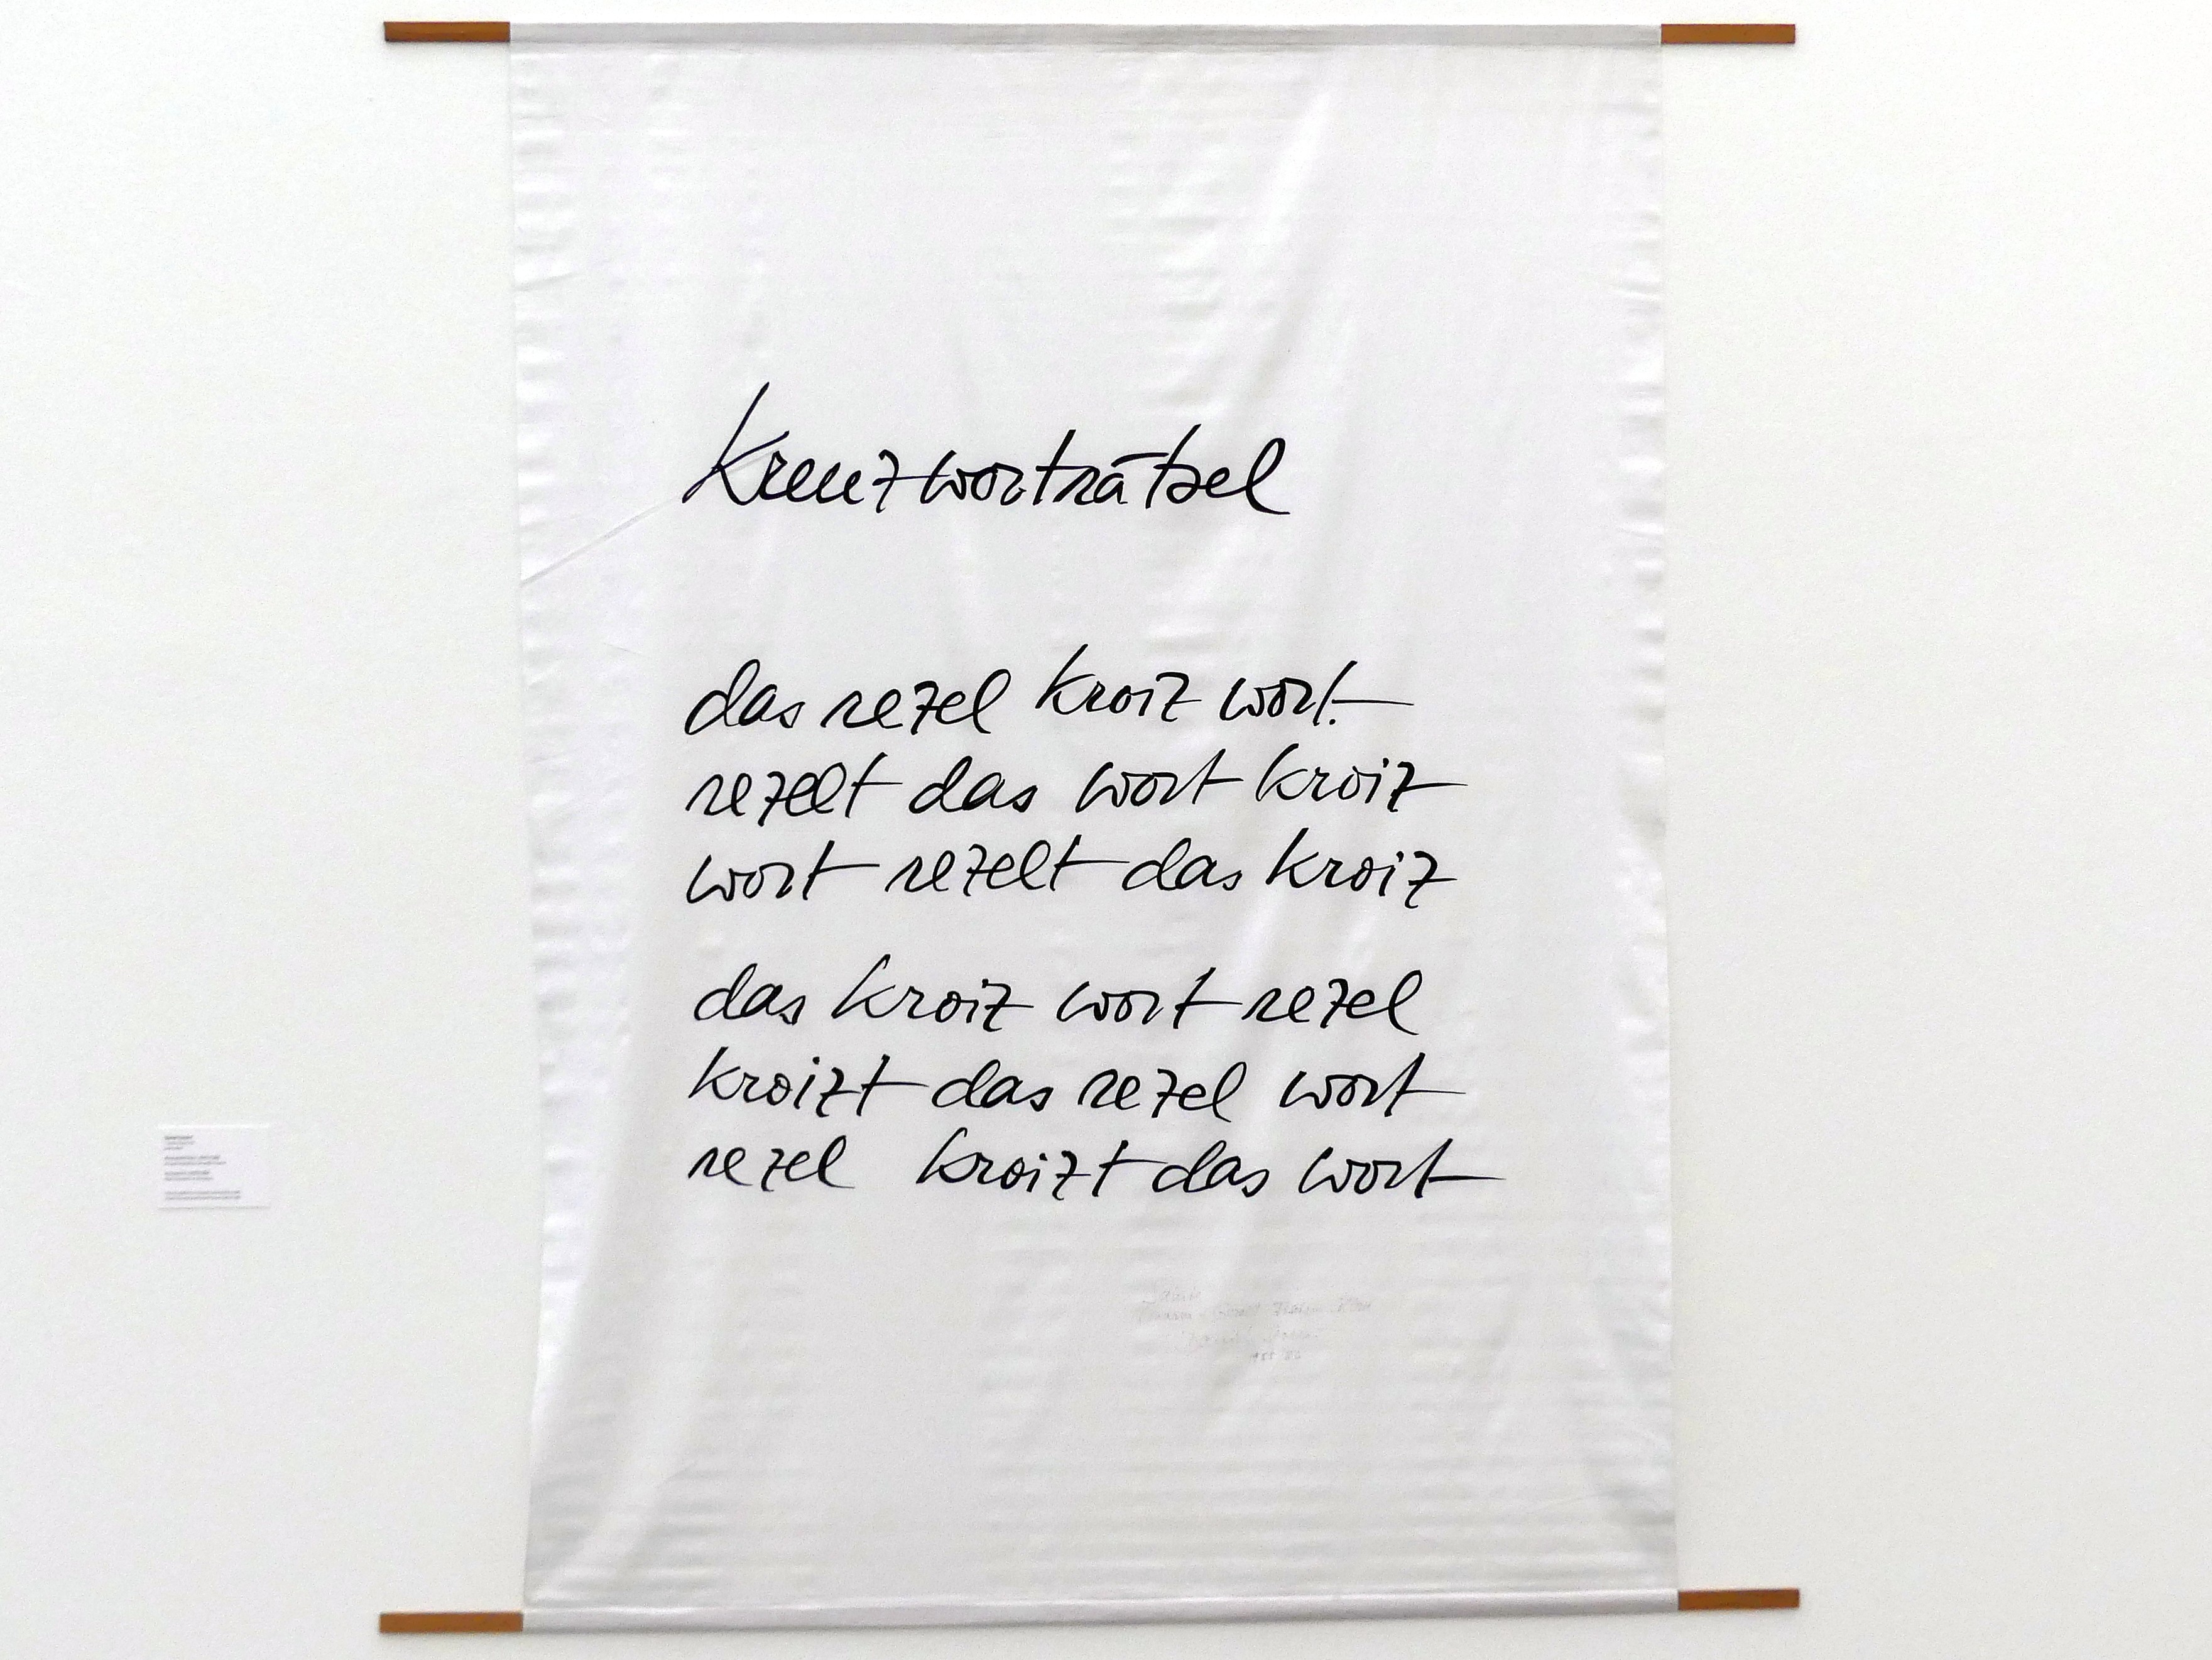 Kreuzworträtsel
das rezel kroiz wort
rezelt das wort kroiz
wort rezelt das kroiz
das kroiz wort rezel
kroizt das rezel wort
rezel kroizt das wort